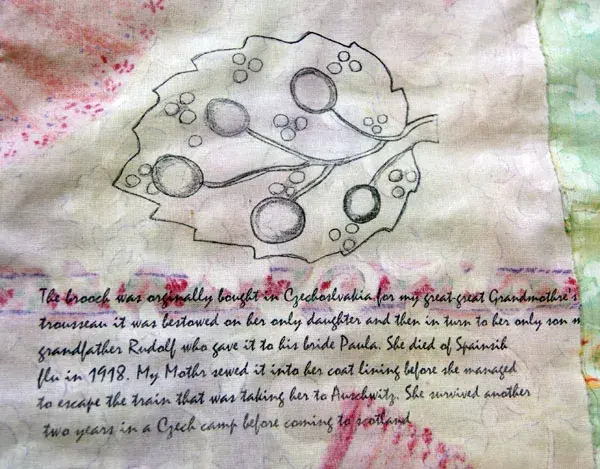 The brooch was orginally bought in Czechoslvakia for my great-great Grandmothre's
trousseau it was bestowed on her only daughter and then in turn to her only son m
grandfather Rudolf who gave it to his bride Paula. She died of Spainsih
flu in 1918. My Mothr sewed it into her coat lining before she managed
to escape the train that was taking her to Auschwitz. She survived another
two years in a Czech camp before coming to scotland